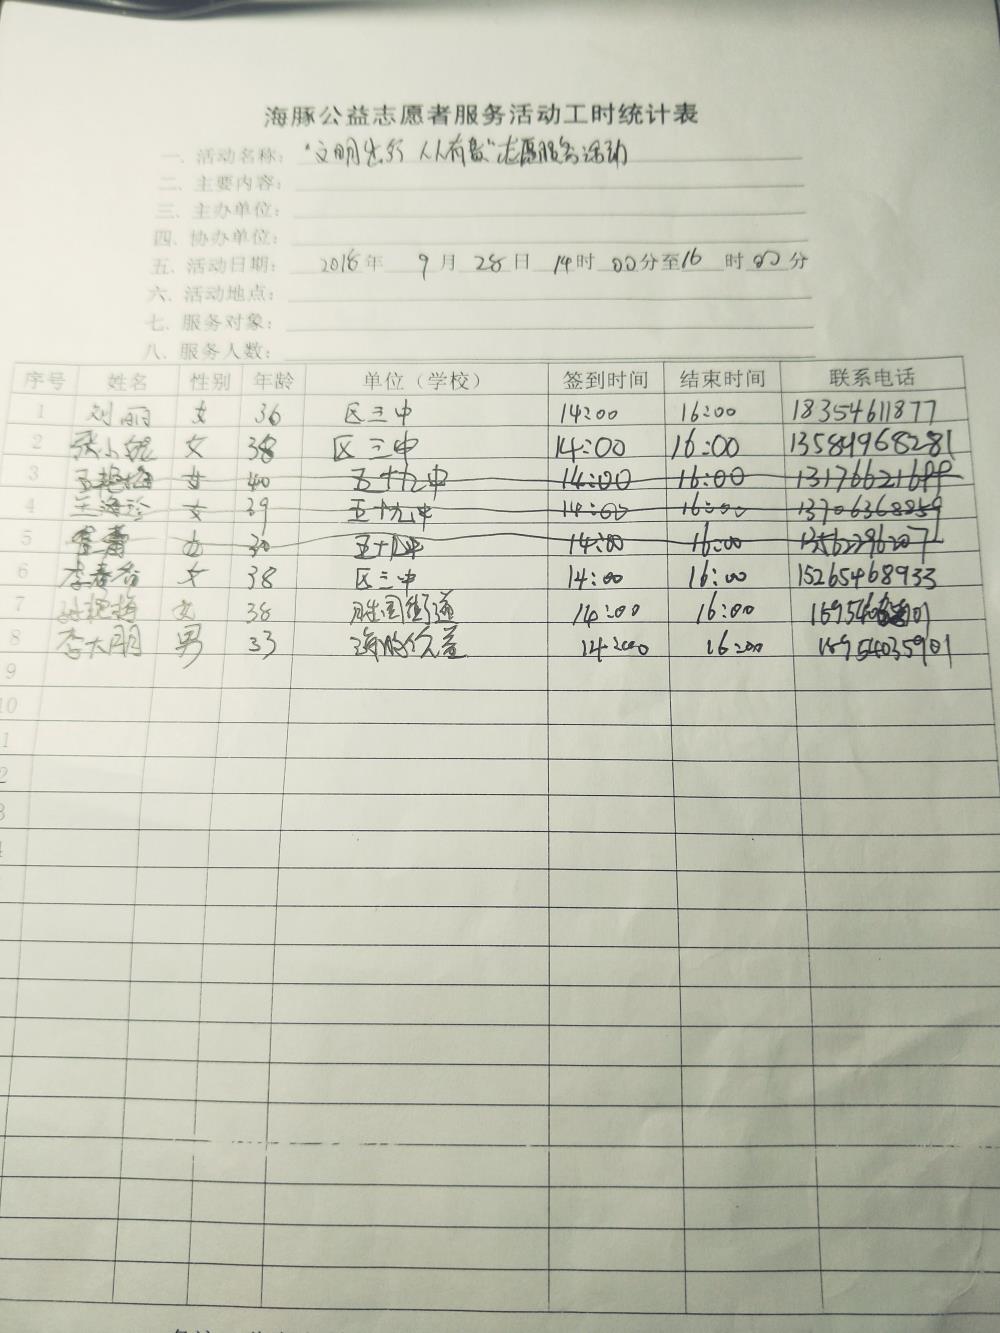 海豚公益志愿者服务活动工时统计表
一、活动名称：“文明出行 人人有责”志愿服务活动
二、主要内容：
三、主办单位：
四、协办单位：
五、活动日期：2018年 9月 28日 14时 00分至16时00分
六、活动地点：
七、服务对象：
八、服务人数：
序号 姓名 性别 年龄 单位（学校） 签到时间 结束时间 联系电话
1 刘丽 女 36 区三中 14:00 16:00 18354611877
2 张小妮 女 38 区三中 14:00 16:00 13584968281
3 女 40 五十九中 14:00 16:00
4 王海珍 女 39 五十九中 14:00 16:00 13706368859
5 女 30 14:00 16:00
6 李春香 女 38 区三中 14:00 16:00 15265468933
7 女 38 胜园街道 14:00 16:00
8 李大朋 男 33 海豚公益 14:00 16:00 18954035901
9
10